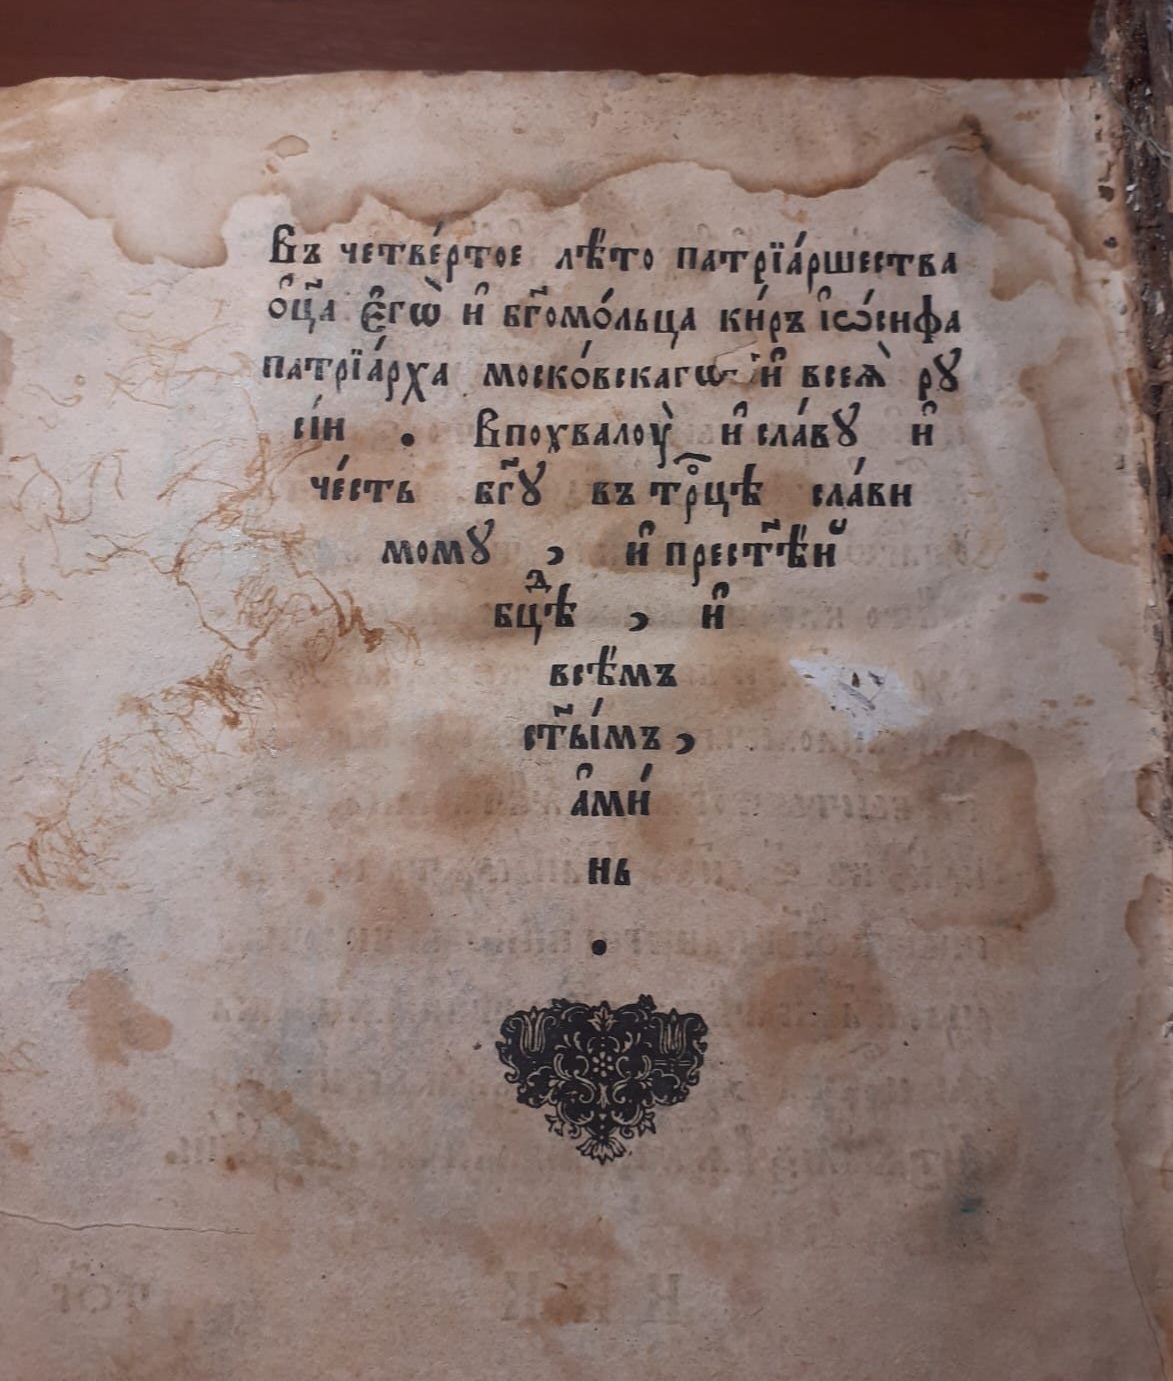 Въ четве́ртое лѣ́то патрїа́ршества
ѻ҆ц҃а є҆гѡ̀ и҆ бг҃омо́льца ки́ръ і҆ѡ́сифа
патрїа́рха моско́вскагѡ и҆ всеѧ̀ рꙋ
сі́и . Впохвалоу̀ и҆ сла́вꙋ и҆
че́сть бг҃ꙋ въ трⷪ҇цѣ сла́ви
момꙋ , и҆ прест҃ѣ́й
бцⷣѣ , и҆
всѣ́мъ
ст҃ы́мъ ,
а҆ми́
нь
.